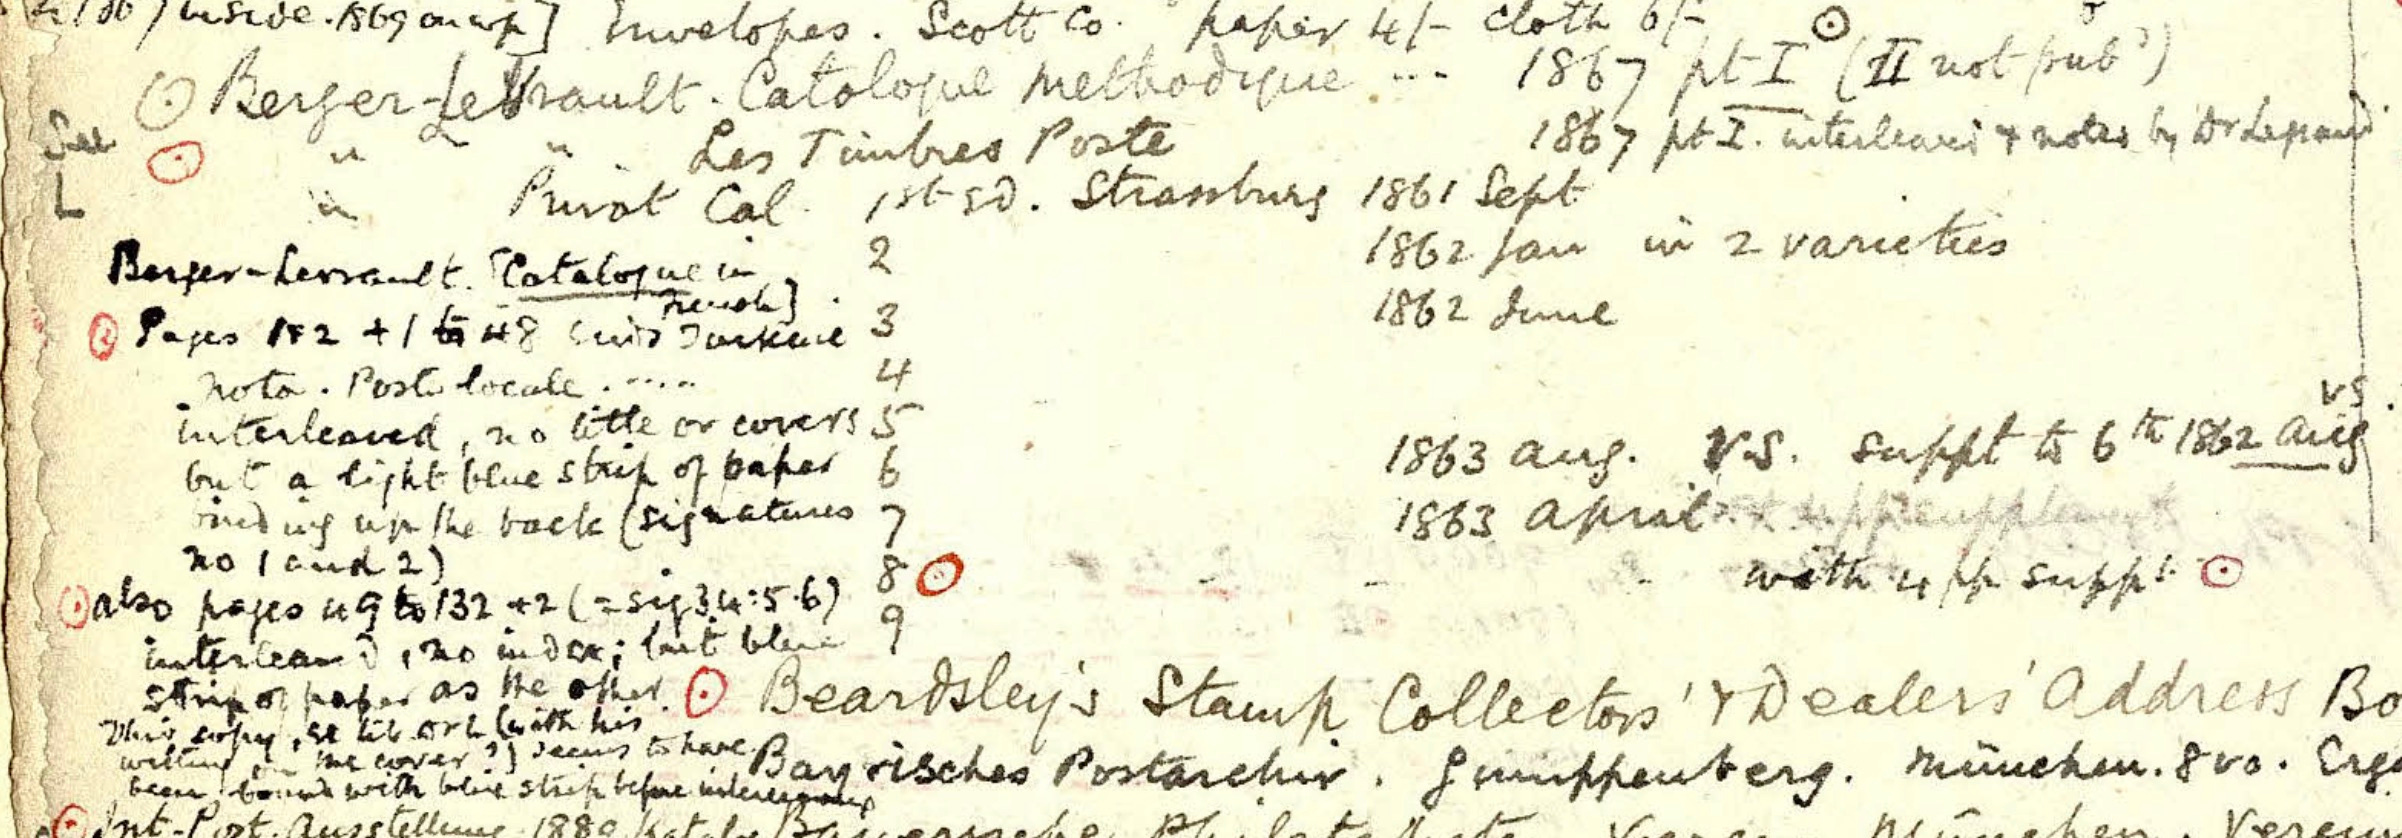 inside. 1869 on wp] Envelopes. Scott Co. paper 4/- cloth 6/-
Berger-Levrault. Catalogue methodique ... 1867 pt I (II not pubd)
See " " Les Timbres Poste 1867 pt I. interleaved & notes by Dr Legrand
L " Privat Cal. 1st Ed. Strassburg 1861 Sept
Berger-Levrault. [Catalogue in 2 1862 Jan in 2 varieties
French]
Pages 1+2 + 1 to 48 ends Turkuie 3 1862 June
nota. Poste locale ..... 4
interleaved, no title or covers 5
vs.
but a light blue strip of paper 6 1863 Aug. V.S. suppt to 6th 1862 Aug
binding up the back (signatures 7 1863 April
no 1 and 2) 8 - - - with 4 pp suppt.
also pages 49 to 132 + 2 (= sig 3.4:5.6) 9
interleaved, no index; but blue
strip of paper as the other. Beardsley's Stamp Collectors' & Dealers' Address Bo
This copy, (with his
writing on the cover?) seems to have Bayrisches Postarchiv. Gumppenberg. München. 8vo.
been bound with blue strip before interleaving
Int-Post. Ausstellung. 1889 Katalog München. Verein